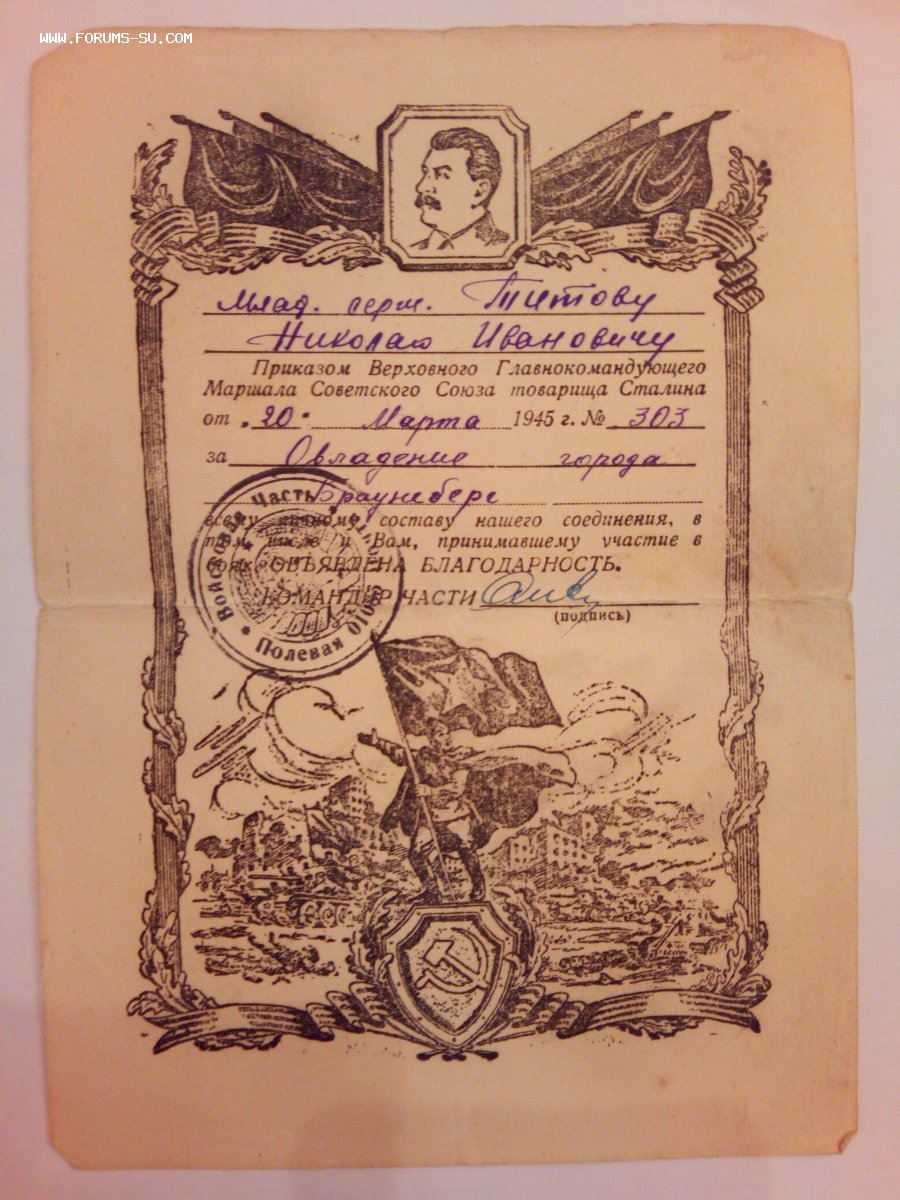 WWW.FORUMS-SU.COM
Млад. серж. Титову
Николаю Ивановичу
Приказом Верховного Главнокомандующего
Маршала Советского Союза товарища Сталина
от „20" Марта 1945 г. № 303
за Овладение города
Браунсберг
всему личному составу нашего соединения, в
том числе и Вам, принимавшему участие в
боях ОБЪЯВЛЕНА БЛАГОДАРНОСТЬ.
КОМАНДИР ЧАСТИ
(подпись)
Войсковая Часть
Полевая